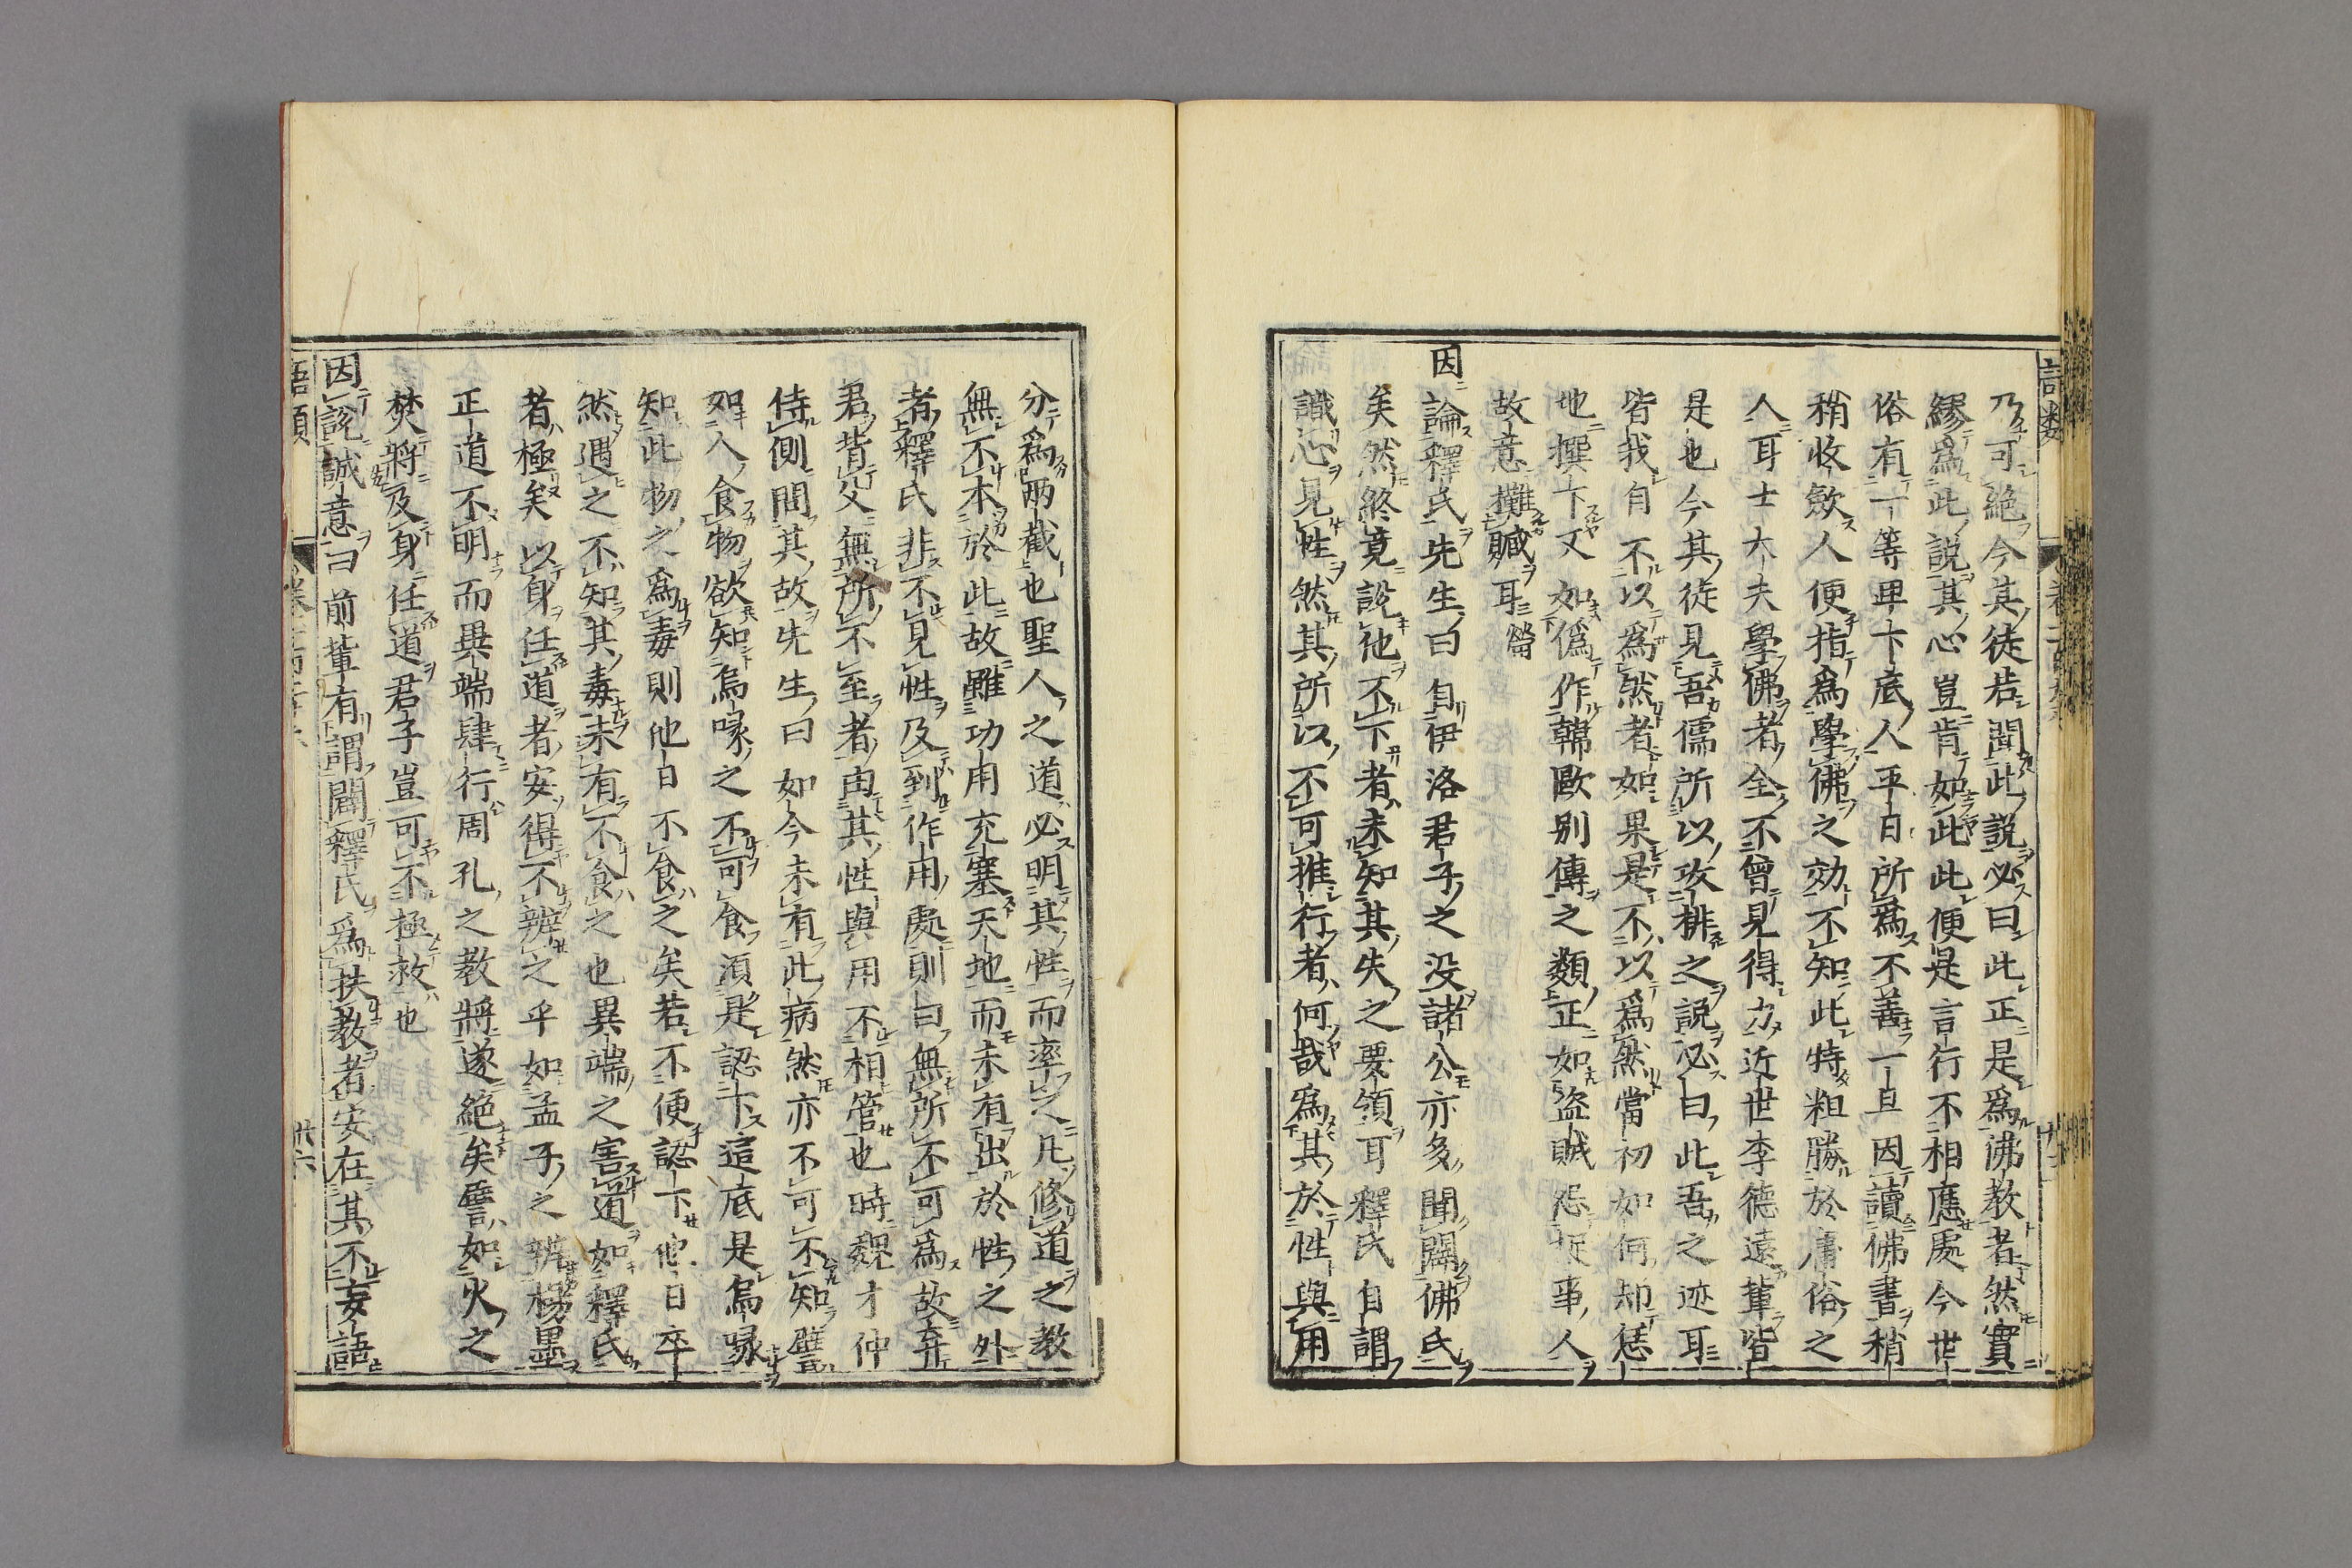 乃可絶今其徒若聞此説必曰此正是爲佛教者然實
繆爲此説其心豈肯如此此便是言行不相應處今世
俗有一等卑下底人平日所爲不善一旦因讀佛書稍
稍收歛人便指爲學佛之効不知此特粗勝於庸俗之
人耳士大夫學佛者全不曾見得力近世李德遠輩皆
是也今其徒見吾儒所以攻排之説必曰此吾之迹耳
皆我自不以爲然者如果是不以爲然當初如何却恁
地撰下又如偽作韓歐别傳之類正如盗賊怨捉事人
故意攤贓耳㽦
因論釋氏先生曰自伊洛君子之没諸公亦多聞闢佛氏
矣然終竟説他不下者未知其失之要領耳釋氏自謂
識心見性然其所以不可推行者何哉爲其於性與用
分爲兩截也聖人之道必明其性而率之凡修道之教
無不本於此故雖功用充塞天地而未有出於性之外
者釋氏非不見性及到作用處則曰無所不可爲故棄
君背父無所不至者由其性與用不相管也時魏才仲
侍側問其故先生曰如今未有此病然亦不可不知譬
如人食物欲知烏喙之不可食須是認下這底是烏喙
知此物之爲毒則他日不食之矣若不便認下他日卒
然遇之不知其毒未有不食之也異端之害道如釋氏
者極矣以身任道者安得不辨之乎如孟子之辨楊墨
正道不明而異端肆行周孔之教將遂絶矣譬如火之
焚將及身任道君子豈可不極救也
因説誠意曰前輩有謂闢釋氏爲扶教者安在其不妄語
語類